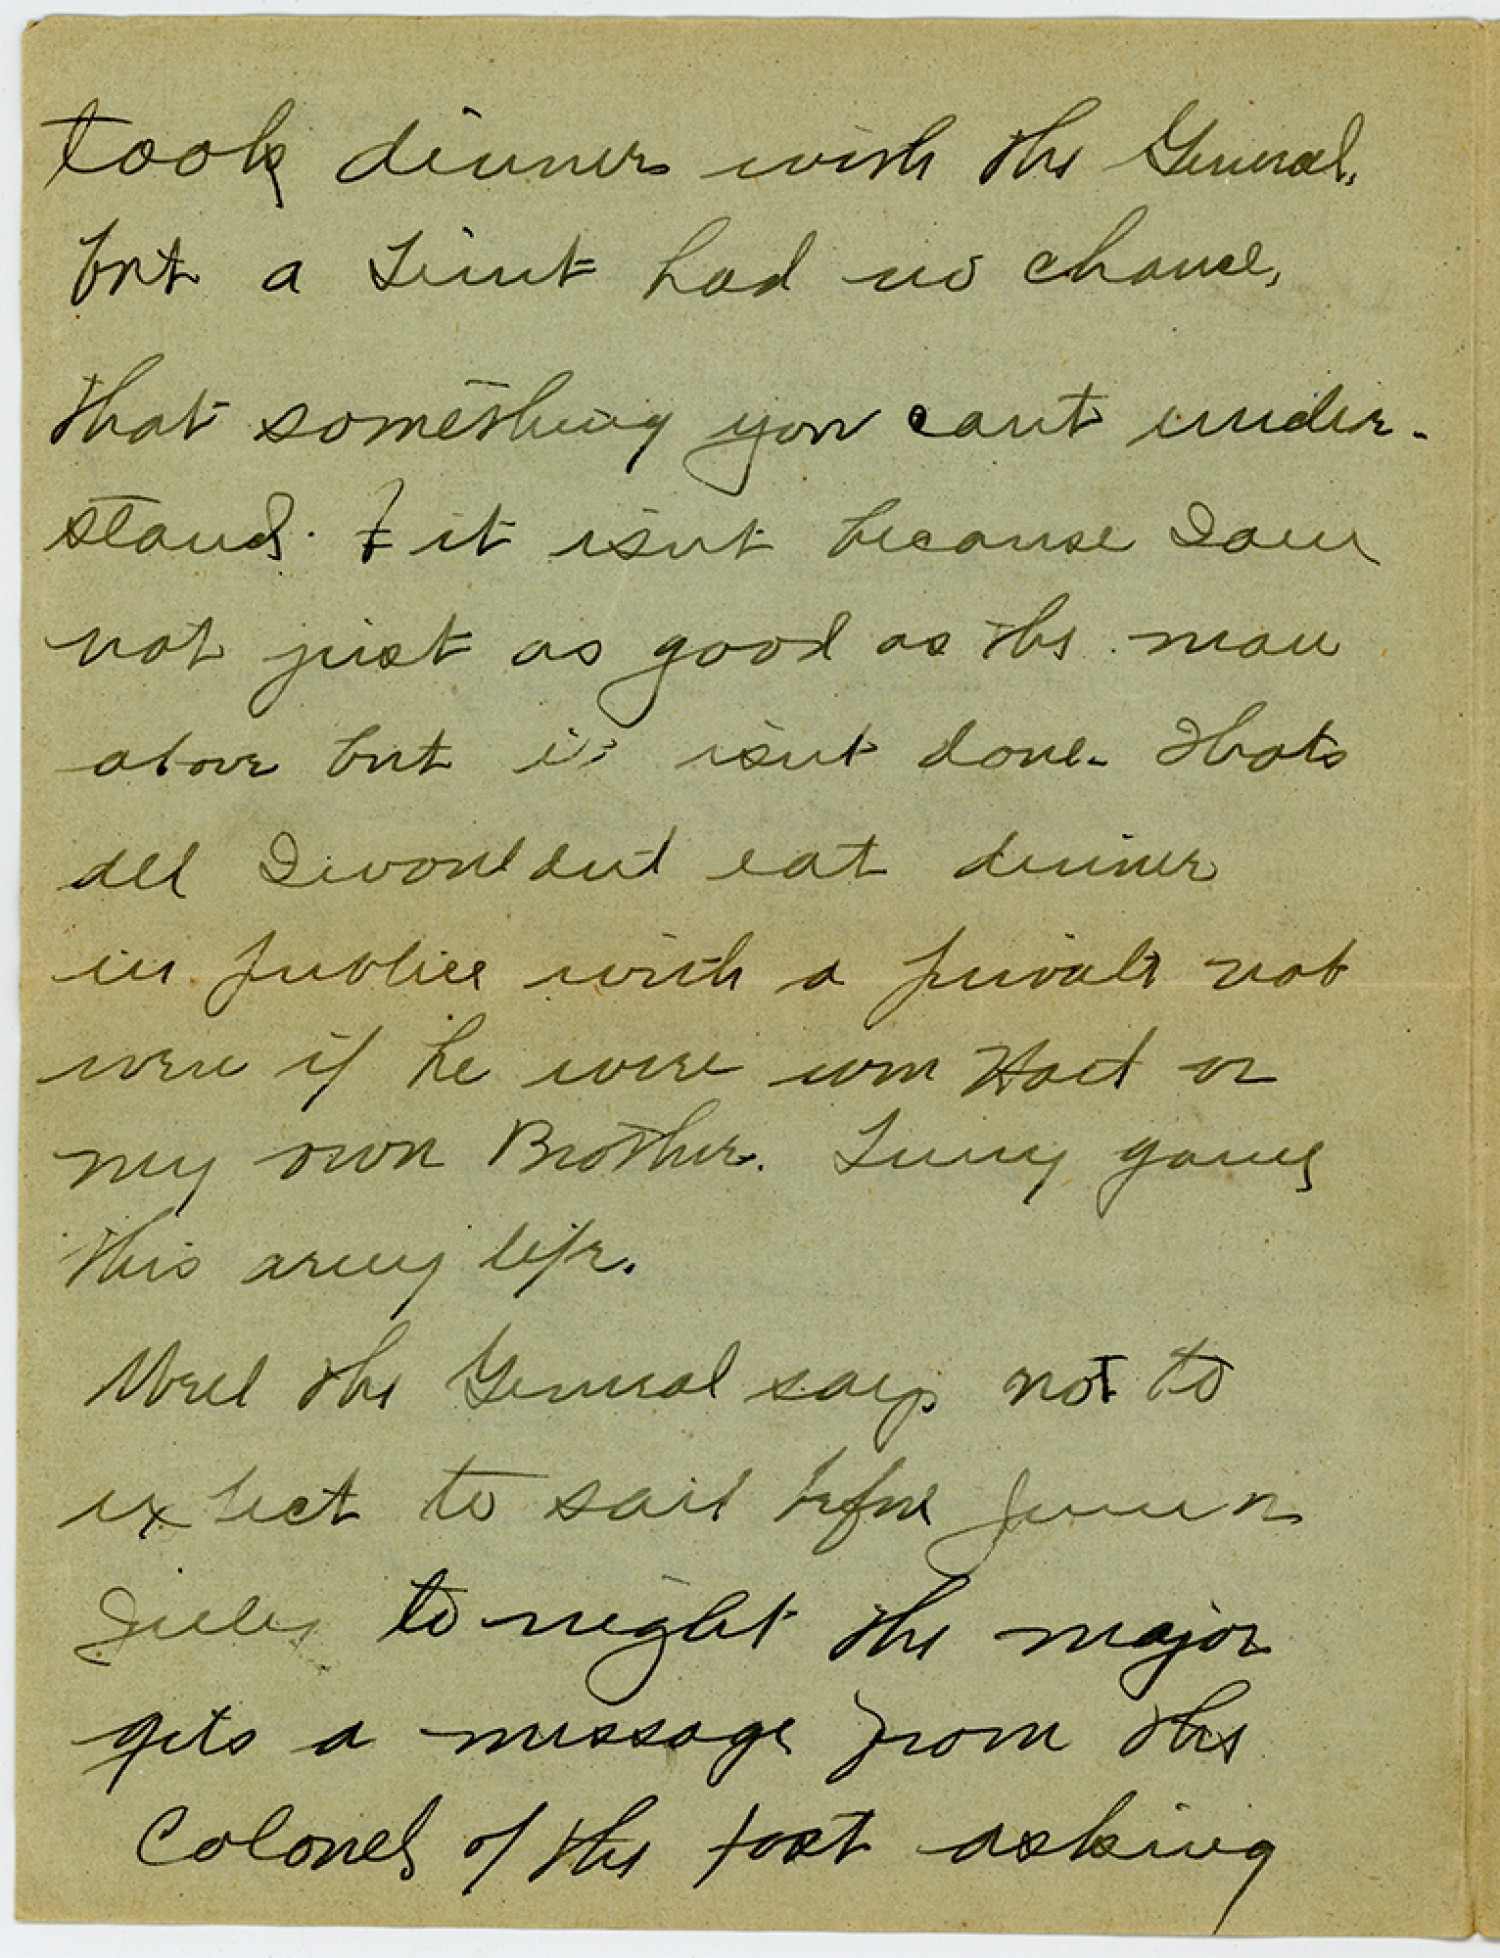 took dinner with the General,
but a Lieut had no chance,
that something you cant under-
stand. & it isnt because I am
not just as good as the man
above but it isnt done. Thats
all I wouldnt eat dinner
in public with a private not
even if he were Wm Hart or
my own Brother. Funny game
this army life.
Well the General says not to
expect to sail before June or
July to night the major
gets a message from the
Colonel of the Post asking